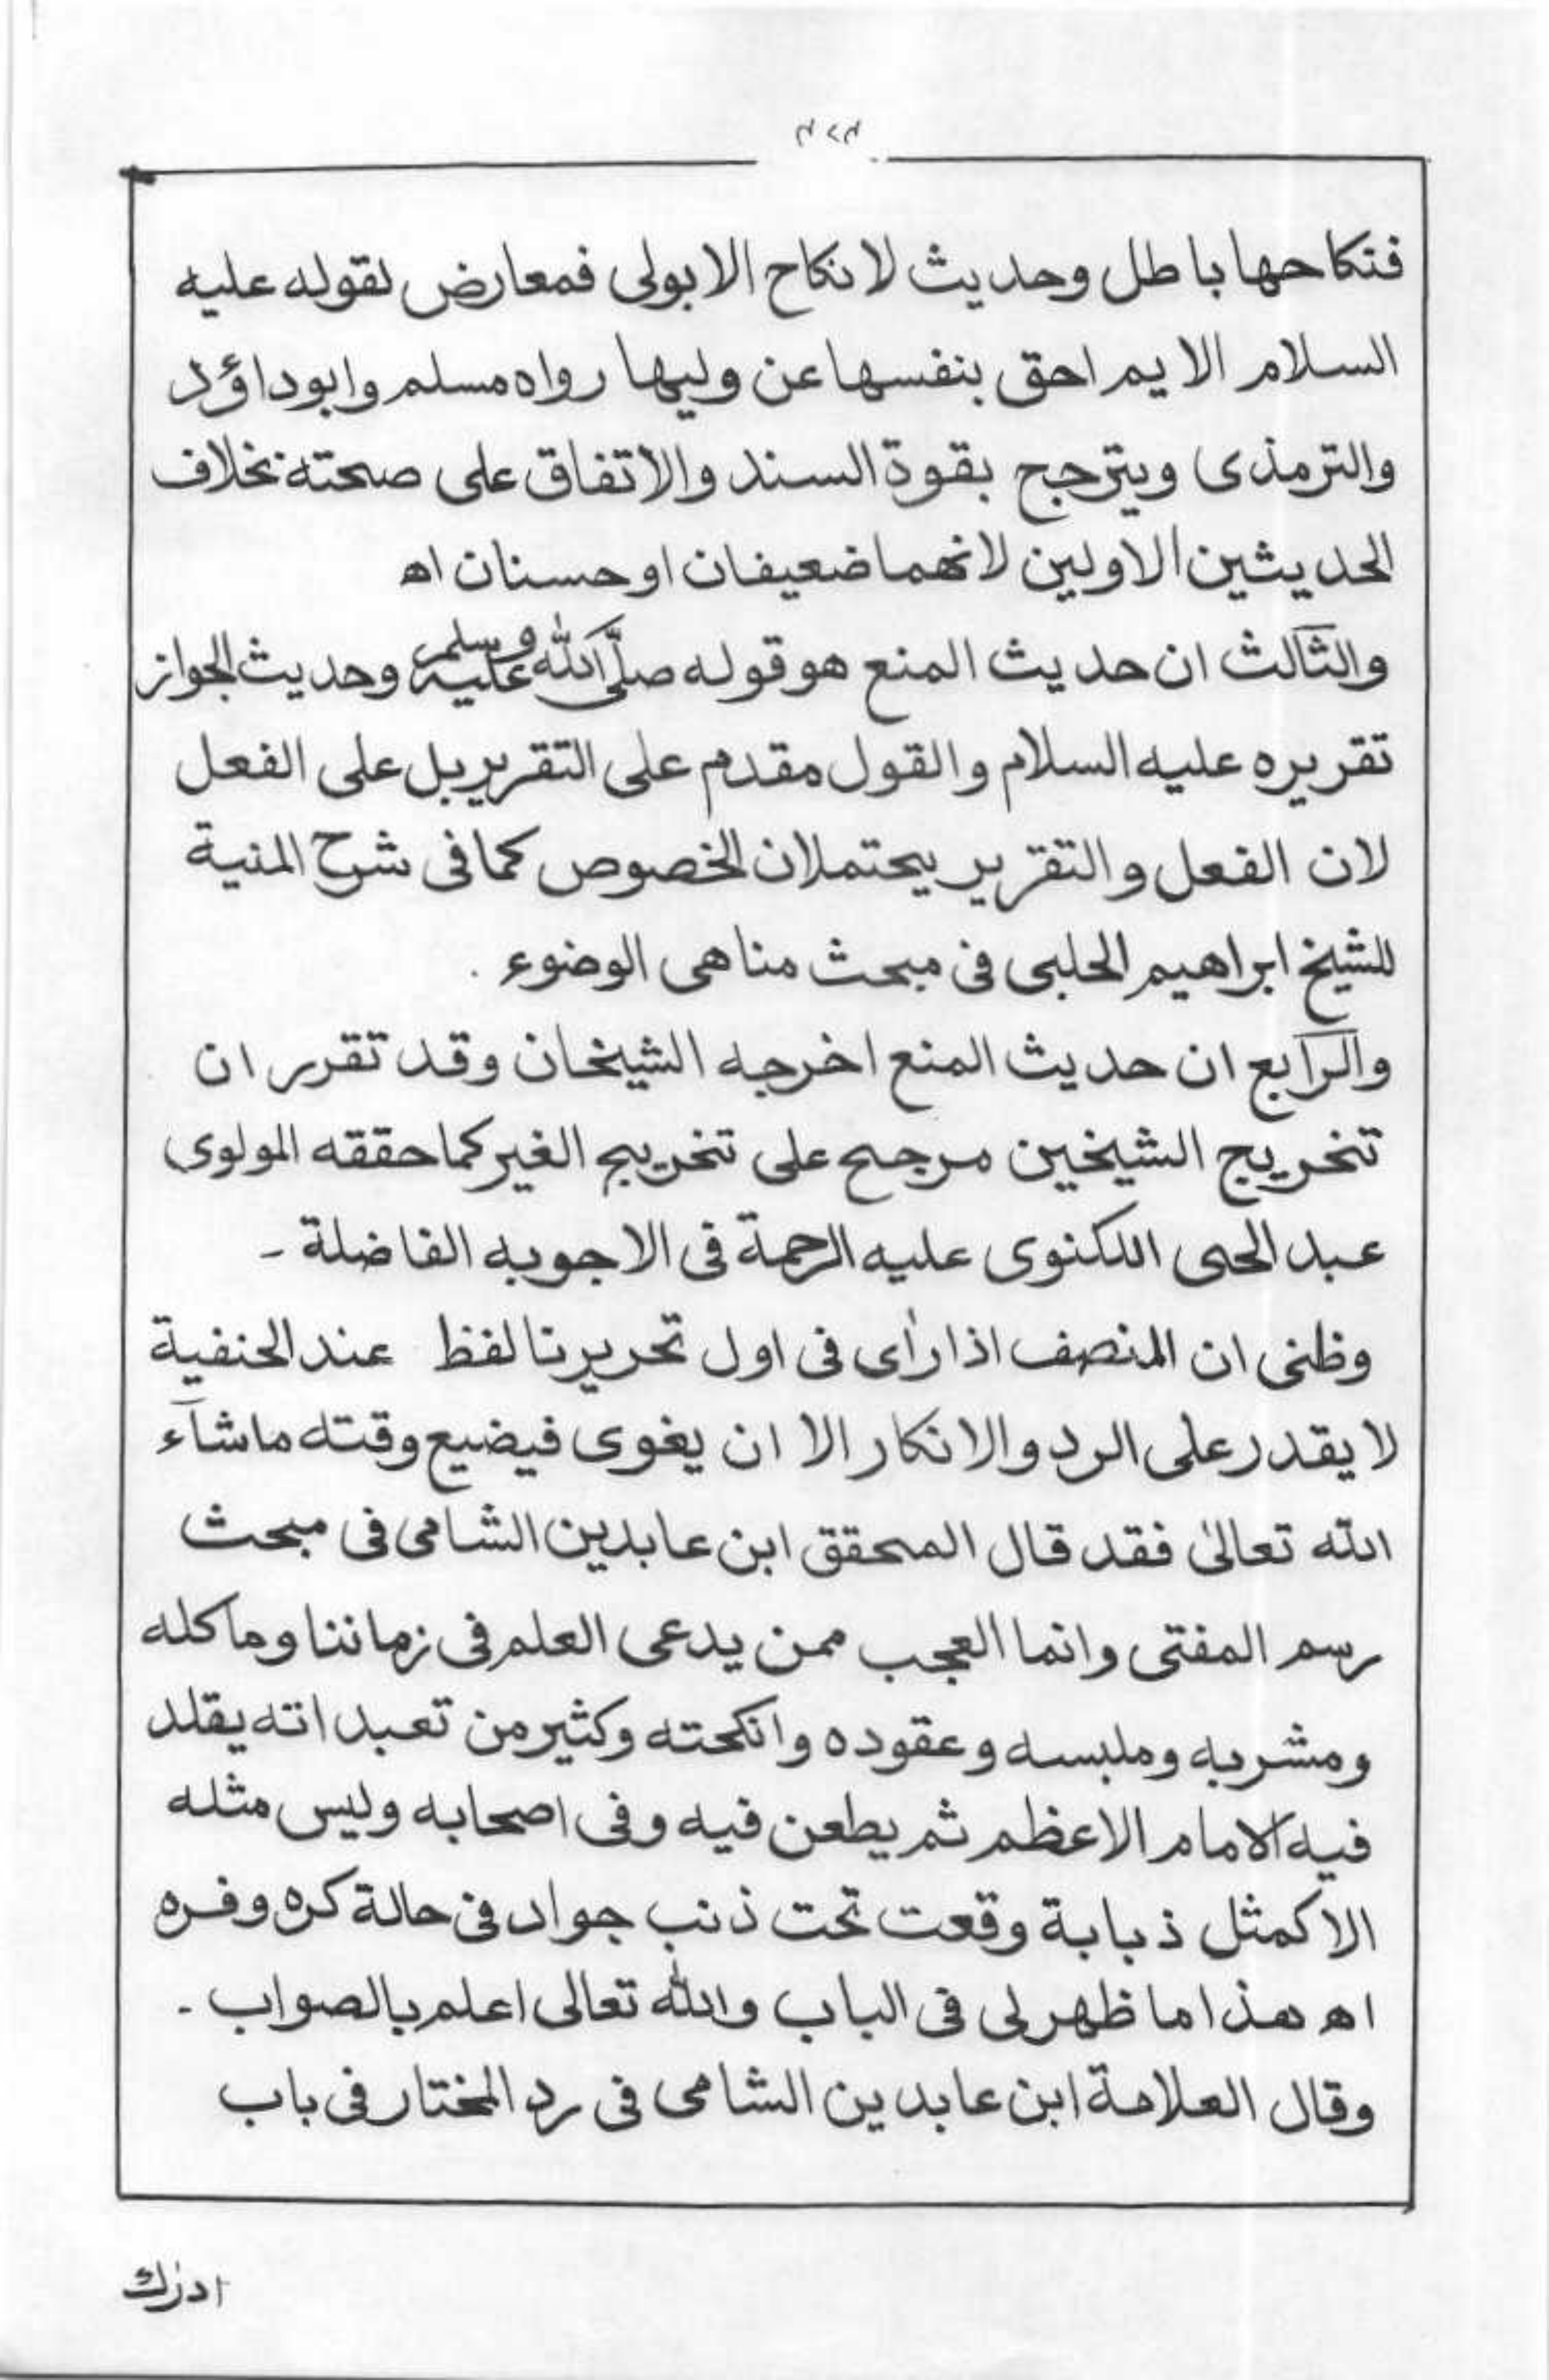 فنكاحها باطل وحديث لا نكاح الا بولى فمعارض بقوله عليه
السلام الايم احق بنفسها عن وليها رواه مسلم وابوداؤد
والترمذى ويترجح بقوة السند والاتفاق على صحته بخلاف
الحديثين الاولين لانهما ضعيفان او حسنان اه
والثالث ان حديث المنع هو قوله صلى الله عليه وسلم وحديث الجواز
تقريره عليه السلام والقول مقدم على التقرير بل على الفعل
لان الفعل والتقرير يحتملان الخصوص كما فى شرح المنية
للشيخ ابراهيم الحلبى فى مبحث مناهى الوضوء .
والرابع ان حديث المنع اخرجه الشيخان وقد تقرر ان
تخريج الشيخين مرجح على تخريج الغير كما حققه المولوى
عبد الحى اللكنوى عليه الرحمة فى الاجوبه الفاضلة -
وظنى ان المنصف اذا رأى فى اول تحريرنا لفظ عند الحنفية
لا يقدر على الرد والانكار الا ان يغوى فيضيع وقته ماشآء
الله تعالىٰ فقد قال المحقق ابن عابدين الشامى فى مبحث
رسم المفتى وانما العجب ممن يدعى العلم فى زماننا ومأكله
ومشربه وملبسه وعقوده وانكحته وكثير من تعبداته يقلد
فيه الامام الاعظم ثم يطعن فيه وفى اصحابه وليس مثله
الا كمثل ذبابة وقعت تحت ذنب جواد فى حالة كره وفره
اه هذا ما ظهر لى فى الباب والله تعالى اعلم بالصواب -
وقال العلامة ابن عابدين الشامى فى رد المختار فى باب